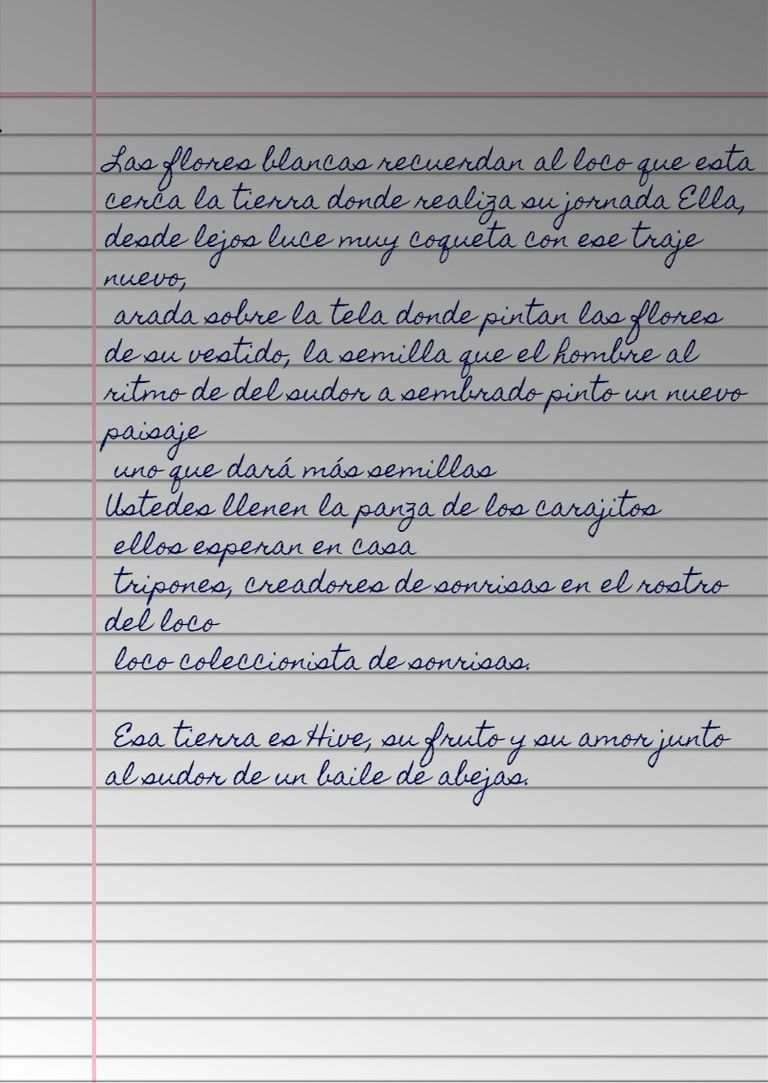 Las flores blancas recuerdan al loco que esta
cerca la tierra donde realiza su jornada Ella,
desde lejos luce muy coqueta con ese traje
nuevo,
arada sobre la tela donde pintan las flores
de su vestido, la semilla que el hombre al
ritmo de del sudor a sembrado pinto un nuevo
paisaje
uno que dará más semillas
Ustedes llenen la panza de los carajitos
ellos esperan en casa
tripones, creadores de sonrisas en el rostro
del loco
loco coleccionista de sonrisas.
Esa tierra es Hive, su fruto y su amor junto
al sudor de un baile de abejas.